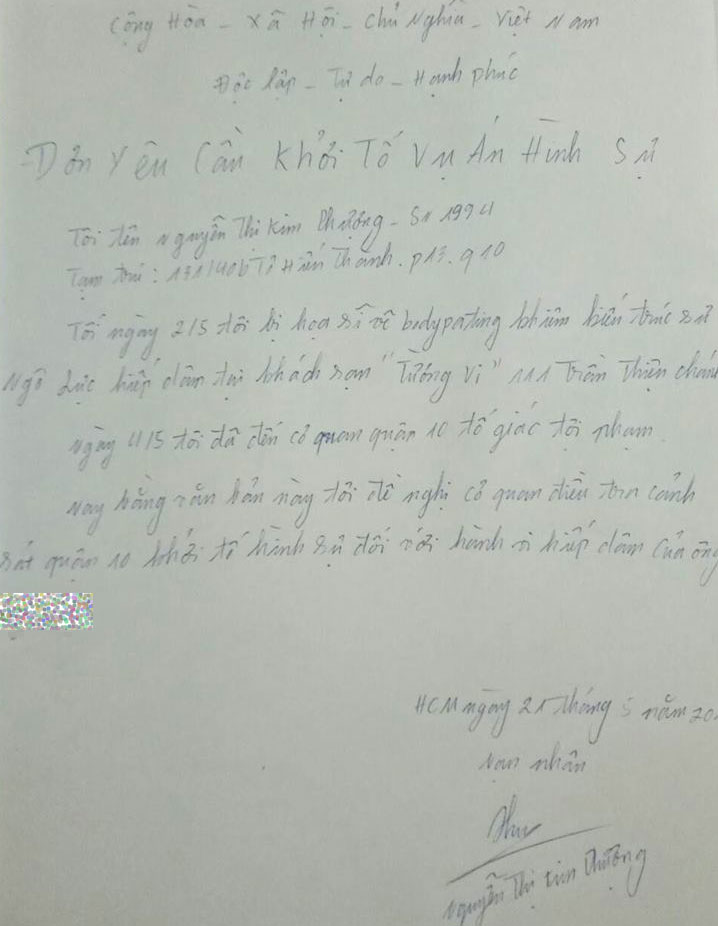 Cộng Hòa - Xã Hội - Chủ Nghĩa - Việt Nam
Độc lập - Tự do - Hạnh phúc
Đơn Yêu Cầu Khởi Tố Vụ Án Hình Sự
Tôi tên Nguyễn Thị Kim Phượng - Sn 1994
Tạm trú : 131/40b Tô Hiến Thành . p13 . q10
Tối ngày 2/5 tôi bị họa sĩ vẽ bodypating khiêm kiến trúc sư
Ngô Lực hiếp dâm tại khách sạn "Tường Vi" 111 Trần Thiện Chánh
Ngày 4/5 tôi đã đến cơ quan quận 10 tố giác tội phạm
Nay bằng văn bản này tôi đề nghị cơ quan điều tra cảnh
sát quận 10 khởi tố hình sự đối với hành vi hiếp dâm của ông
HCM ngày 25 tháng 5 năm 20
Nạn nhân
Nguyễn Thị Kim Phượng